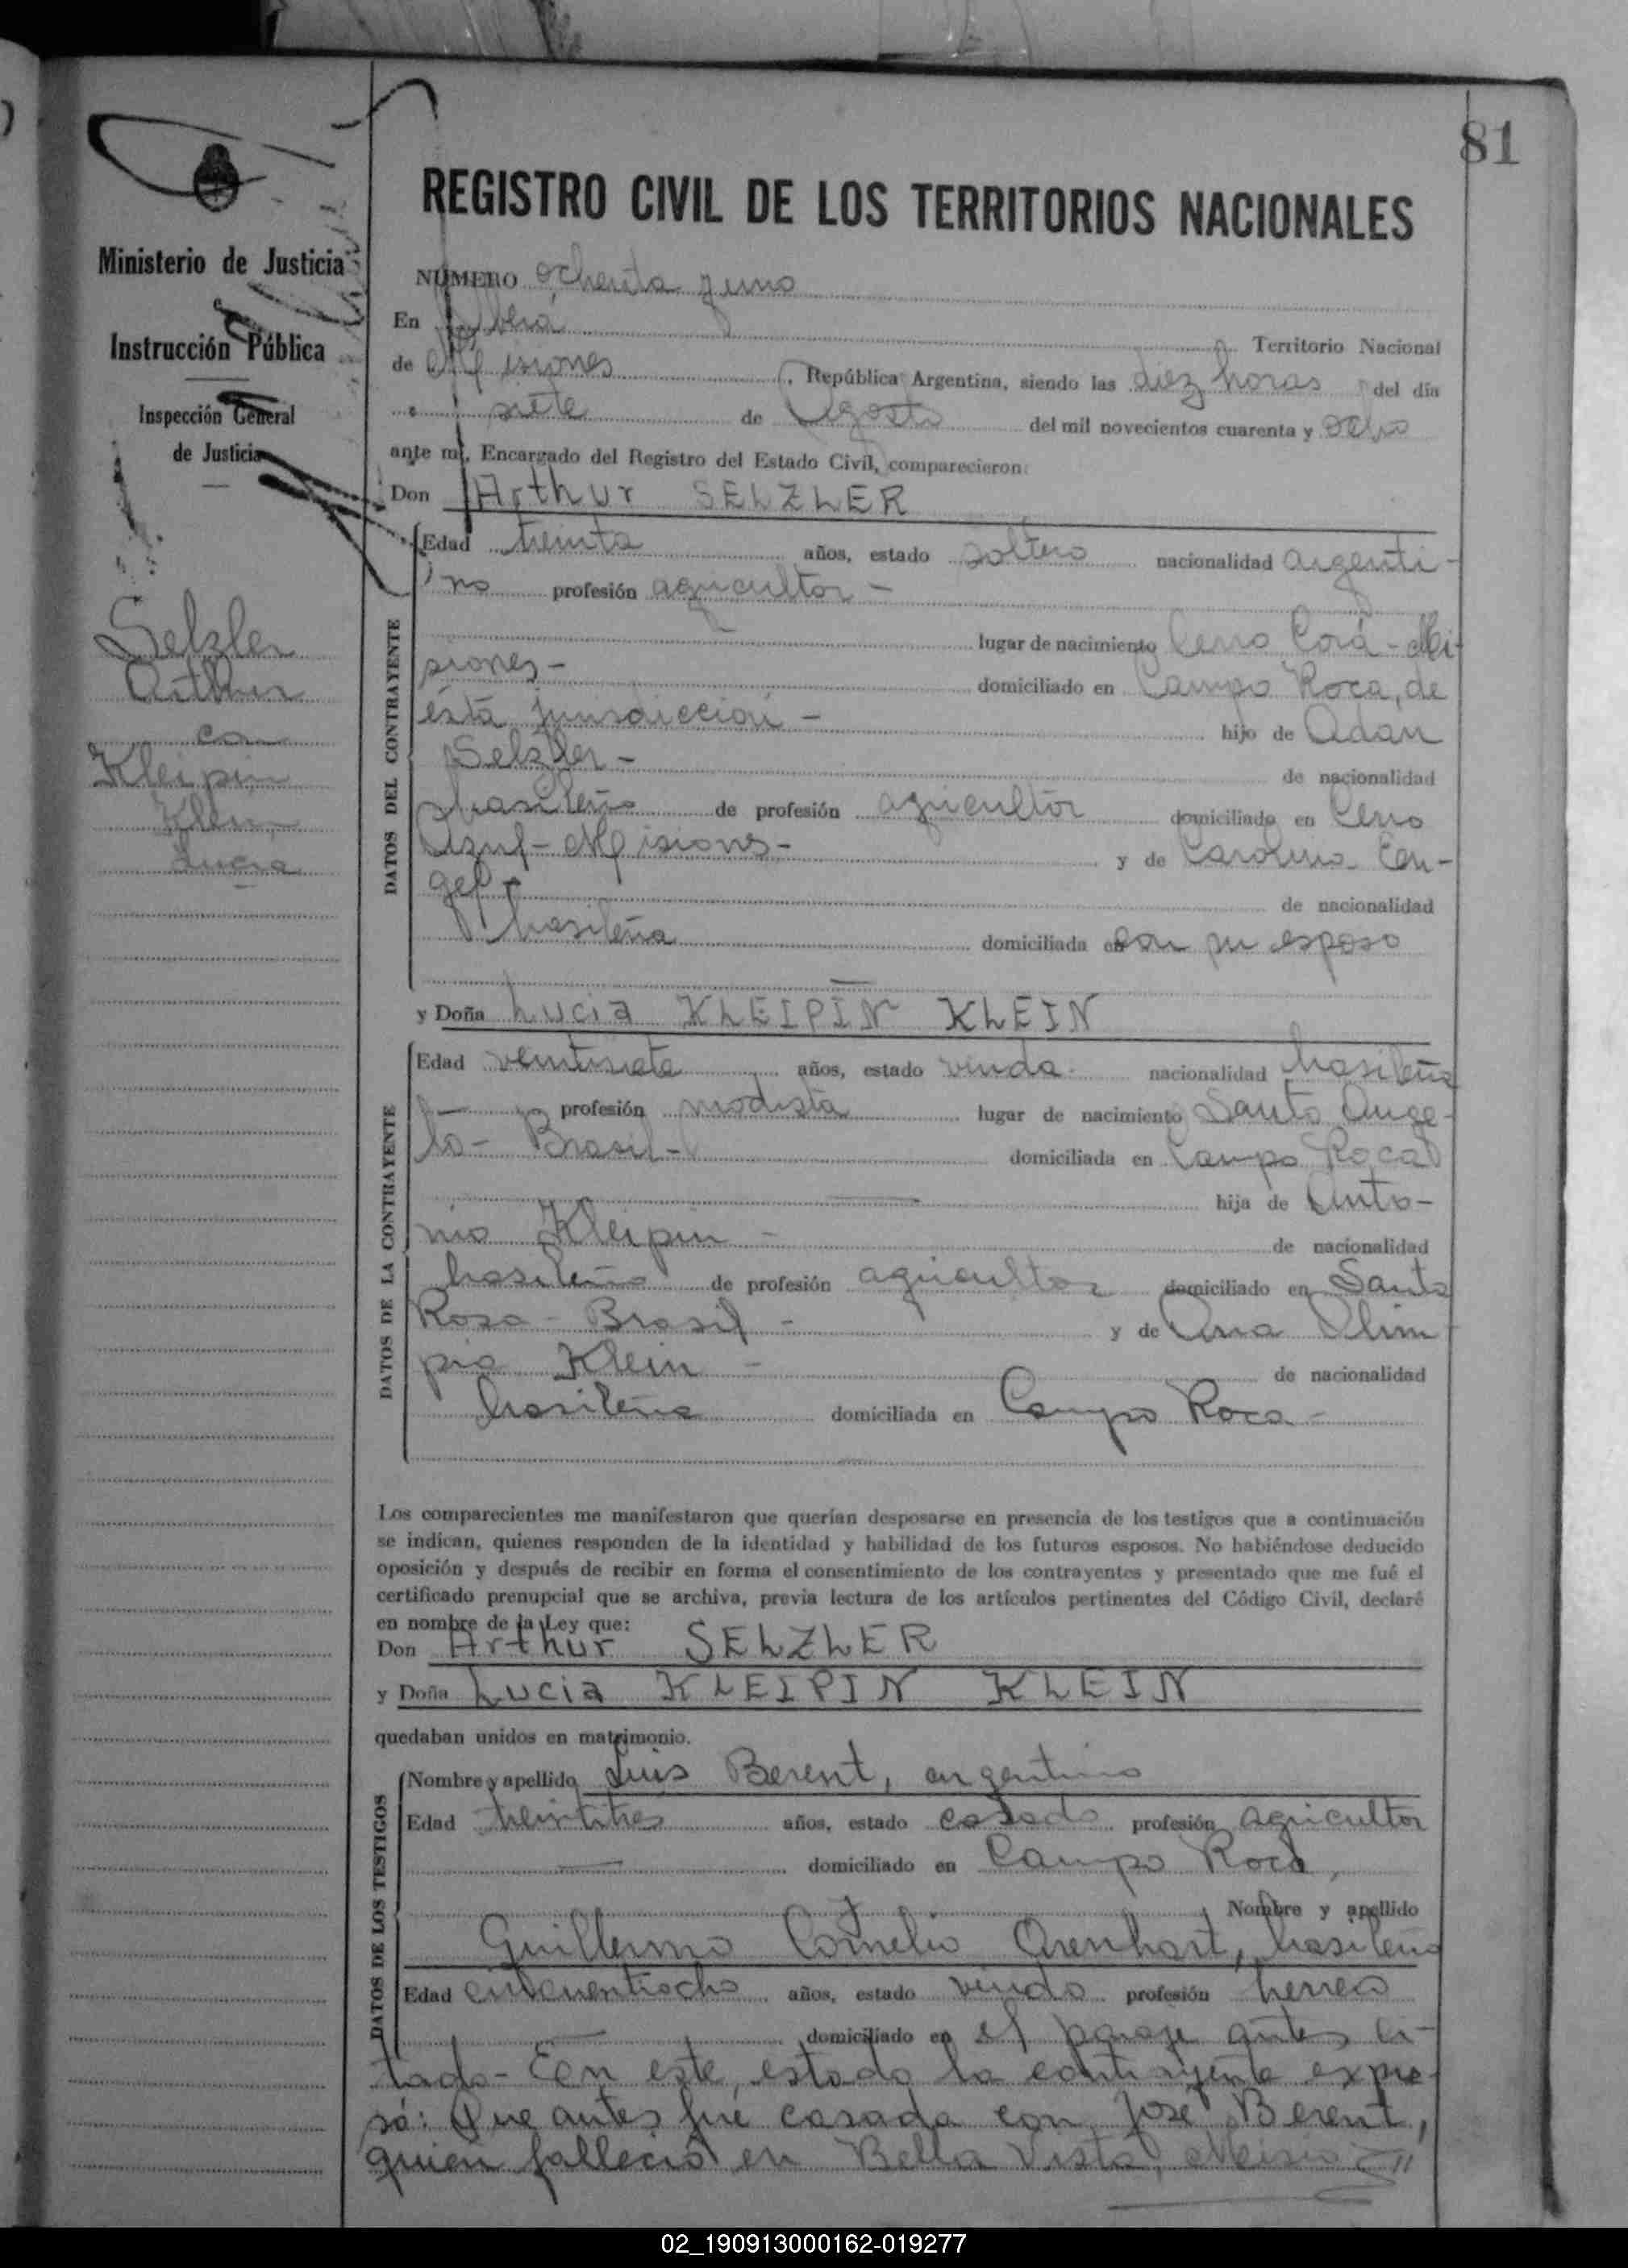 81
REGISTRO CIVIL DE LOS TERRITORIOS NACIONALES
Ministerio de Justicia
e
Instrucción Pública
Inspección General
de Justicia
Selzler
Arthur
con
Kleipin
Klein
Lucia
NÚMERO ochenta y uno
En Oberá Territorio Nacional
de Misiones, República Argentina, siendo las diez horas del día
siete de Agosto del mil novecientos cuarenta y ocho
ante mí, Encargado del Registro del Estado Civil, comparecieron:
Don Arthur SELZLER
DATOS DEL CONTRAYENTE
Edad treinta años, estado soltero nacionalidad argenti-
no profesión agricultor -
lugar de nacimiento Cerro Corá - Mi-
siones - domiciliado en Campo Roca, de
ésta jurisdicción - hijo de Adan
Selzler - de nacionalidad
brasileño de profesión agricultor domiciliado en Cerro
Azul - Misiones - y de Carolina En-
gel - de nacionalidad
brasileña domiciliada en con su esposo
y Doña Lucia KLEIPIN KLEIN
DATOS DE LA CONTRAYENTE
Edad veintisiete años, estado viuda nacionalidad brasileña
profesión modista lugar de nacimiento Santo Ange-
lo - Brasil - domiciliada en Campo Roca
hija de Anto-
nio Kleipin - de nacionalidad
brasileño de profesión agricultor domiciliado en Santa
Rosa - Brasil - y de Ana Olim
pia Klein - de nacionalidad
brasileña domiciliada en Campo Roca -
Los comparecientes me manifestaron que querían desposarse en presencia de los testigos que a continuación
se indican, quienes responden de la identidad y habilidad de los futuros esposos. No habiéndose deducido
oposición y después de recibir en forma el consentimiento de los contrayentes y presentado que me fué el
certificado prenupcial que se archiva, previa lectura de los artículos pertinentes del Código Civil, declaré
en nombre de la Ley que:
Don Arthur SELZLER
y Doña Lucia KLEIPIN KLEIN
quedaban unidos en matrimonio.
DATOS DE LOS TESTIGOS
Nombre y apellido Luis Berent, argentino
Edad treintitres años, estado casado profesión agricultor
domiciliado en Campo Roca,
Nombre y apellido
Guillermo Cornelio Arenhart, brasileño
Edad cincuentiocho años, estado viudo profesión herrero
domiciliado en el paraje antes ci-
tado - En este estado la contrayente expre-
só: Que antes fue casada con José Berent,
quien falleció en Bella Vista, Misio
02_190913000162-019277